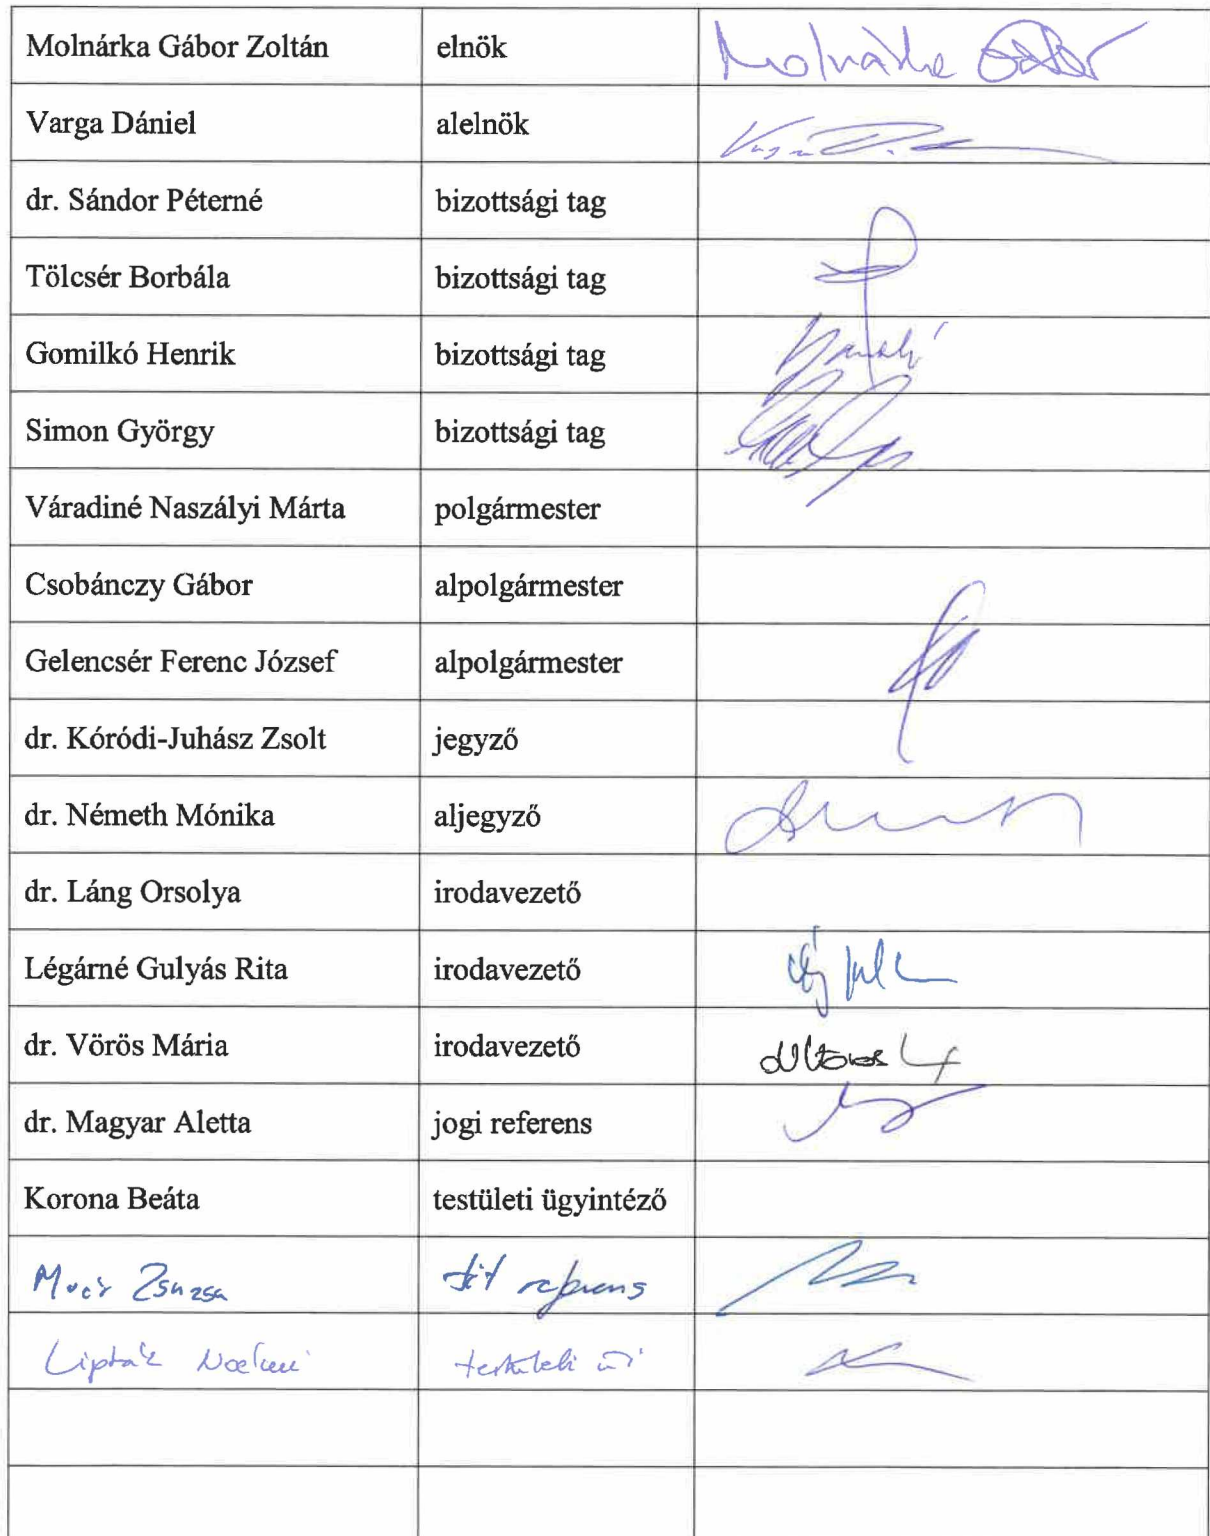 Molnárka Gábor Zoltán elnök Molnárka Gábor
Varga Dániel alelnök
dr. Sándor Péterné bizottsági tag
Tölcsér Borbála bizottsági tag
Gomilkó Henrik bizottsági tag
Simon György bizottsági tag
Váradiné Naszályi Márta polgármester
Csobánczy Gábor alpolgármester
Gelencsér Ferenc József alpolgármester
dr. Kóródi-Juhász Zsolt jegyző
dr. Németh Mónika aljegyző
dr. Láng Orsolya irodavezető
Légárné Gulyás Rita irodavezető
dr. Vörös Mária irodavezető
dr. Magyar Aletta jogi referens
Korona Beáta testületi ügyintéző
Zsuzsa referens
Lipták Noémi testületi üi